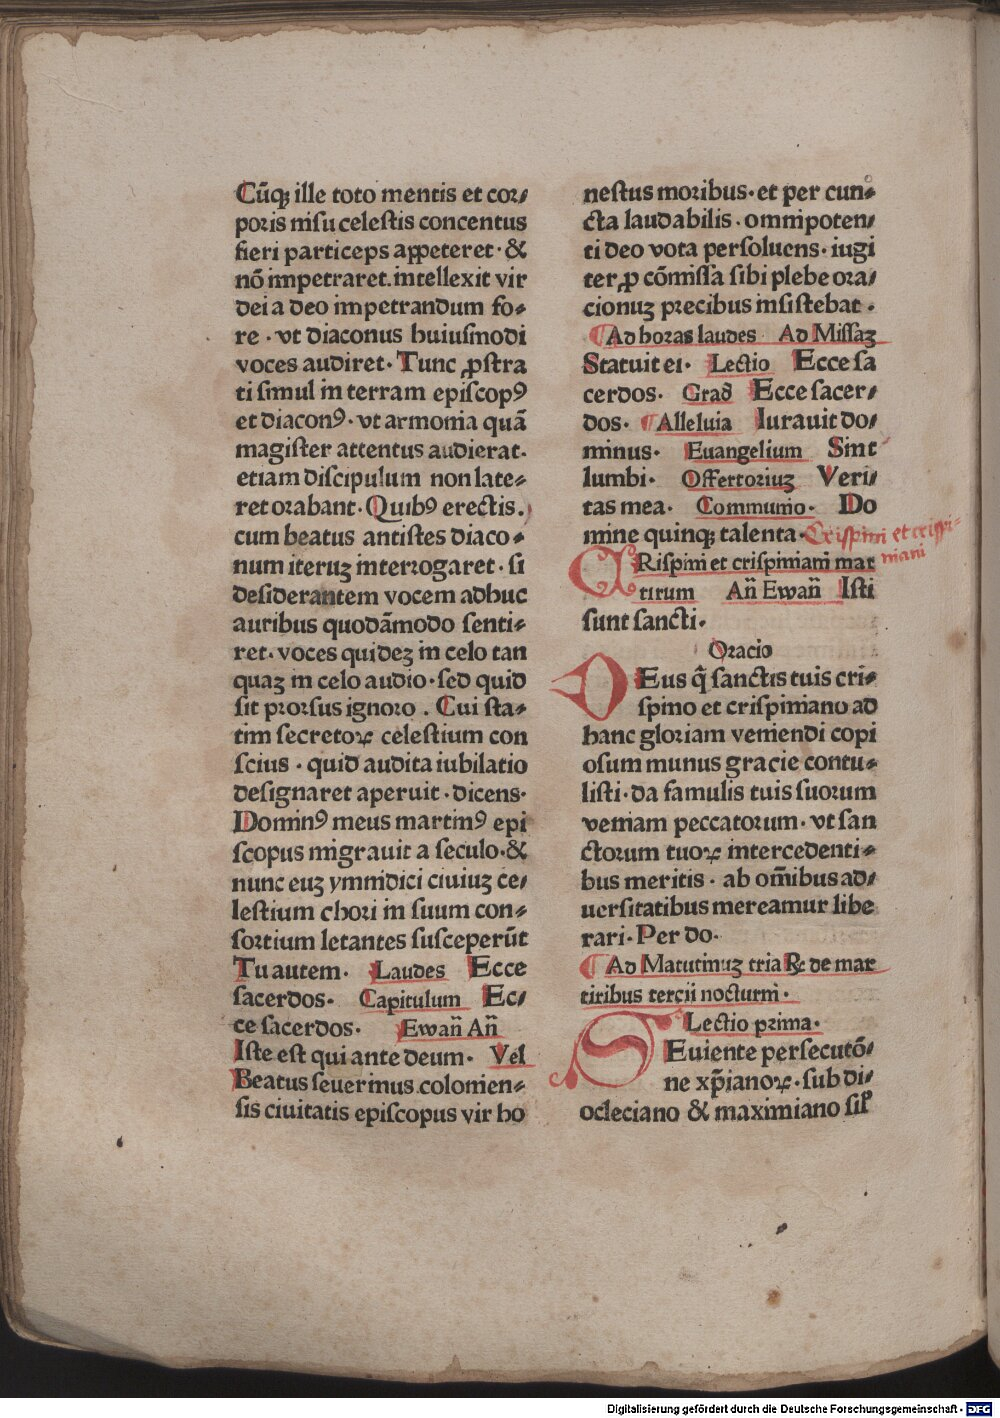 Cūqꝫ ille toto mentis et cor⸗
poris nisu celestis concentus
fieri particeps appeteret · &
nō impetraret. intellexit vir
dei a deo impetrandum fo⸗
re · vt diaconus huiusmodi
voces audiret · Tunc ꝓstra
ti simul in terram episcopꝰ
et diaconꝰ · vt armonia quā
magister attentus audierat ·
etiam discipulum non late⸗
ret orabant · Quibꝰ erectis.
cum beatus antistes diaco⸗
num iteruꝫ interrogaret · si
desiderantem vocem adhuc
auribus quodāmodo senti⸗
ret · voces quideꝫ in celo tan
quaꝫ in celo audio · sed quid
sit prorsus ignoro . Cui sta⸗
tim secretoꝝ celestium con
scius · quid audita iubilatio
designaret aperuit · dicens ·
Dominꝰ meus martinꝰ epi
scopus migrauit a seculo · &
nunc euꝫ ymnidici ciuiuꝫ ce⸗
lestium chori in suum con⸗
sortium letantes susceperūt
Tu autem · Laudes Ecce
sacerdos · Capitulum Ec⸗
ce sacerdos · Ewan̄ An̄
Iste est qui ante deum · Vel
Beatus seuerinus colonien⸗
sis ciuitatis episcopus vir ho
nestus moribus · et per cun⸗
cta laudabilis · omnipoten⸗
ti deo vota persoluens · iugi
ter ꝓ cōmissa sibi plebe ora⸗
cionuꝫ precibus insistebat ·
¶ Ad horas laudes Ad Missaꝫ
Statuit ei · Lectio Ecce sa
cerdos · Grad̄ Ecce sacer⸗
dos · ¶ Alleluia Iurauit do⸗
minus · Euangelium Sint
lumbi · Offertoriuꝫ Veri⸗
tas mea · Communio · Do
mine quinqꝫ talenta · Crispini et crispi⸗
niani
CRispini et crispiniani mar
tirum An̄ Ewan̄ Isti
sunt sancti ·
Oracio
DEus q̄ sanctis tuis cri⸗
spino et crispiniano ad
hanc gloriam veniendi copi
osum munus gracie contu⸗
listi · da famulis tuis suorum
veniam peccatorum · vt san
ctorum tuoꝝ intercedenti⸗
bus meritis · ab om̄ibus ad⸗
uersitatibus mereamur libe
rari · Per do ·
¶ Ad Matutinuꝫ tria ℟ de mar
tiribus tercii nocturni ·
Lectio prima ·
SEuiente persecutō⸗
ne xp̄ianoꝝ · sub di⸗
ocleciano & maximiano sil̄